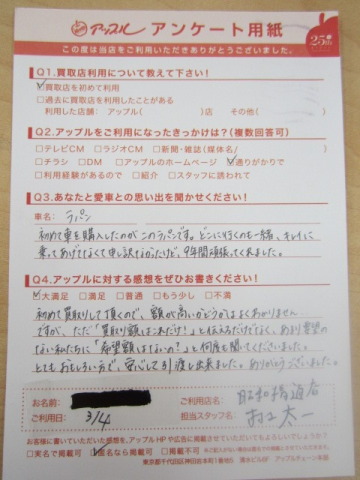 アップル アンケート用紙
25th
この度は当店をご利用いただきありがとうございました。
Q1.買取店利用について教えて下さい!
☑買取店を初めて利用
□過去に買取店を利用したことがある
利用した店舗: アップル( )店 その他( )
Q2.アップルをご利用になったきっかけは?(複数回答可)
□テレビCM □ラジオCM □新聞・雑誌(媒体名/ )
□チラシ □DM □アップルのホームページ ☑通りがかりで
□利用経験があるので □紹介 □スタッフに誘われて
Q3.あなたと愛車との思い出を聞かせください!
車名: ラパン
初めて車を購入したのがこのラパンです。どこに行くのも一緒、キレイに
乗ってあげてなくて申し訳なかったけど、9年間頑張ってくれました。
Q4.アップルに対する感想をぜひお書きください!
☑大満足 □満足 □普通 □もう少し □不満
初めて買取りして頂くので、額が高いかどうかはよくわかりません
ですが、ただ「買取り額はこれだけ!」と伝えるだけでなく、あまり希望の
ない私たちに「希望額はないの?」と何度も聞いてくださいました。
とてもおもしろい方で、安心して引渡し出来ました。ありがとうございました。
お名前:
ご利用日: 3/4
ご利用店名: 昭和橋通店
担当スタッフ名: 村上 太一
お客様に書いていただいた感想を、アップルHPや広告に掲載させていただいてもよろしいでしょうか?
□実名で掲載可 ☑匿名なら掲載可 □掲載不可
東京都千代田区神田岩本町1番地5 清水ビル8F アップルチェーン本部